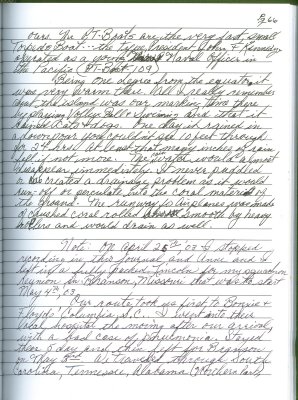 P/66
ours. The PT-Boats are the very fast, small
Torpedo Boat - the type President John F. Kennedy
operated as a young Naval Officer in
the Pacific (PT-Boat 109)
Being one degree from the equator it
was very warm there. All I really remember
about the island was our marking time there
by playing Volley Ball & Swimming and that it
rained cats & dogs. One day it rained in
a downpour you couldn't see through
for 24 hrs. At least that many inches of rain
fell if not more. The water would almost
disappear immediately. It never puddled
or created a drainage problem as it would
run-off or percolate into the coral material of
the ground. The runway for Airplanes was made
of crushed coral rolled smooth by heavy
rollers and would drain as well.
Note: On April 25th 03 I stopped
recording in this journal, and Anne and I
left in a fully packed Lincoln for my squadron
Reunion in Branson, Missouri that was to start
May 4th, 03.
Our route took us first to Bonnie &
Floyds Columbia, S.C. I went into their
local hospital the morning after our arrival,
with a bad case of pneumonia. Stayed
there 5 day and then left for Branson
on May 3rd. We traveled through South
Carolina, Tennessee, Alabama (Northern Part),